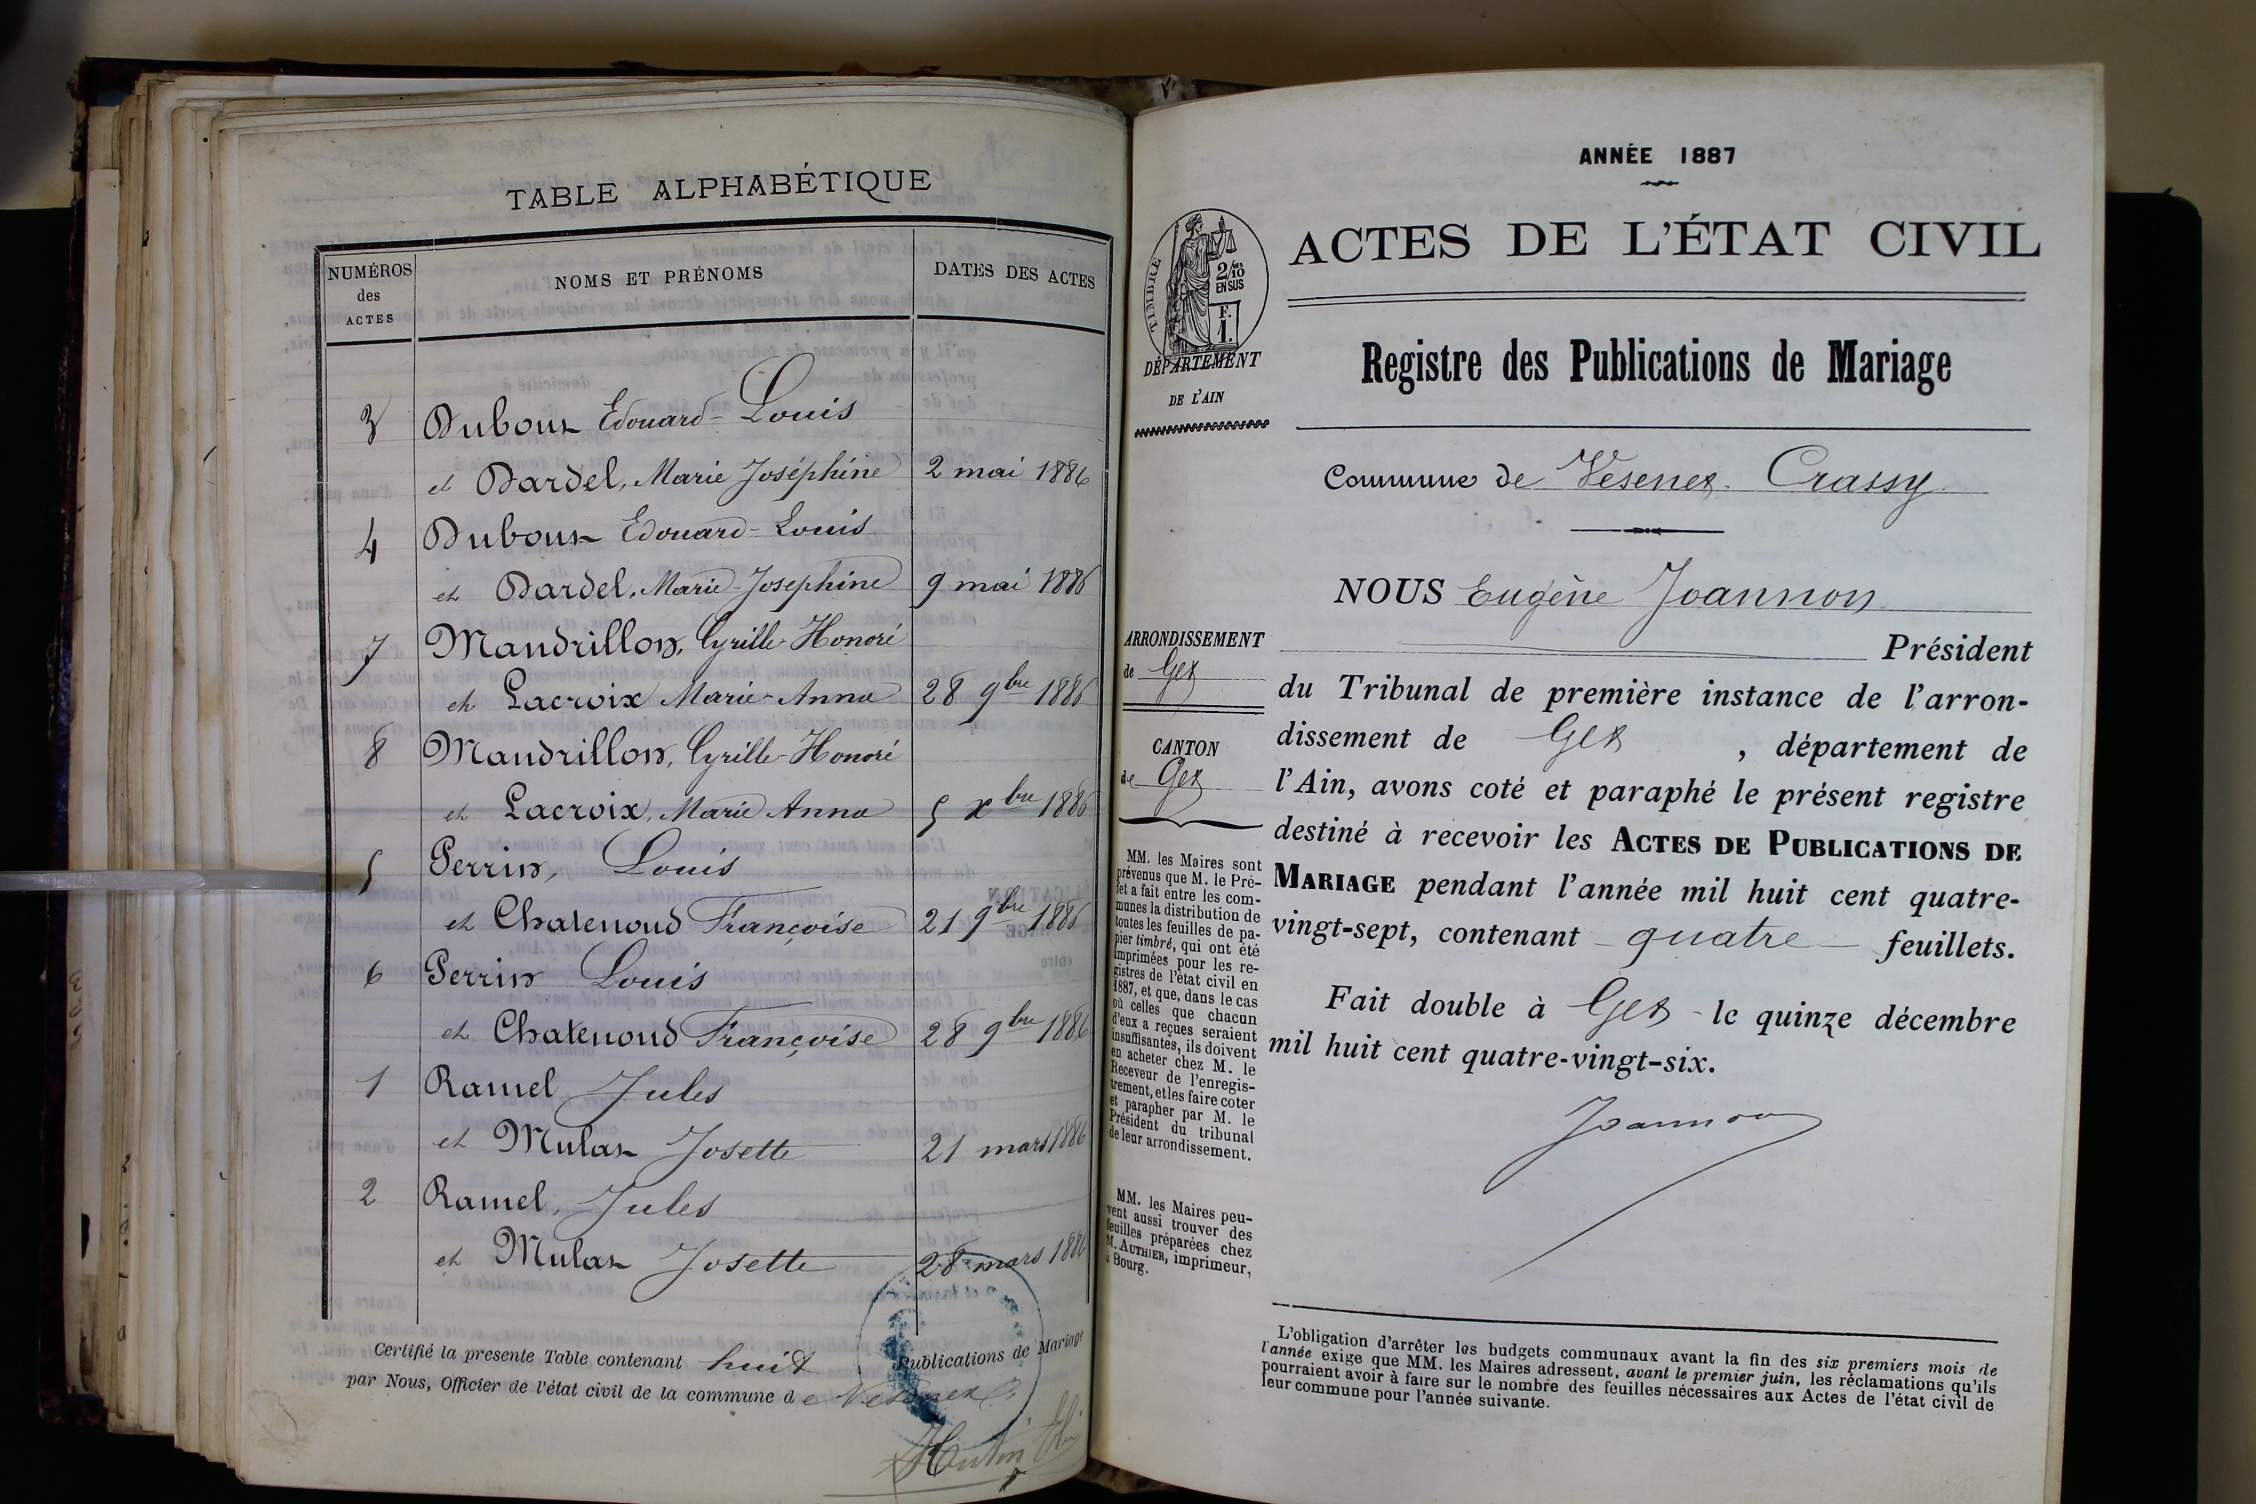 TABLE ALPHABÉTIQUE
NUMÉROS des ACTES
NOMS ET PRÉNOMS
DATES DES ACTES
3 Duboux Edouard-Louis
et Dardel, Marie Joséphine 2 mai 1886
4 Duboux Edouard-Louis
et Dardel, Marie-Josephine 9 mai 1886
7 Mandrillon, Cyrille-Honoré
et Lacroix Marie-Anna 28 9bre 1886
8 Mandrillon, Cyrille-Honoré
et Lacroix, Marie Anna 5 xbre 1886
5 Perrin, Louis
et Chatenoud Françoise 21 9bre 1886
6 Perrin Louis
et Chatenoud Françoise 28 9bre 1886
1 Ramel Jules
et Mulaz Josette 21 mars 1886
2 Ramel, Jules
et Mulaz Josette 28 mars 1886
Certifié la presente Table contenant huit Publications de Mariage
par Nous, Officier de l'état civil de la commune de Vesenex
ANNÉE 1887
ACTES DE L'ÉTAT CIVIL
TIMBRE
2/10 ES
EN SUS
F.
1.
DÉPARTEMENT
DE L'AIN
Registre des Publications de Mariage
Commune de Vesenex-Crassy
ARRONDISSEMENT
de Gex
CANTON
de Gex
MM. les Maires sont
prévenus que M. le Pré-
fet a fait entre les com-
munes la distribution de
toutes les feuilles de pa-
pier timbré, qui ont été
imprimées pour les re-
gistres de l'état civil en
1887, et que, dans le cas
où celles que chacun
d'eux a reçues seraient
insuffisantes, ils doivent
en acheter chez M. le
Receveur de l'enregis-
trement, et les faire coter
et parapher par M. le
Président du tribunal
de leur arrondissement.
MM. les Maires peu-
vent aussi trouver des
feuilles préparées chez
M. AUTHIER, imprimeur,
à Bourg.
NOUS Eugène Joannon
Président
du Tribunal de première instance de l'arron-
dissement de Gex, département de
l'Ain, avons coté et paraphé le présent registre
destiné à recevoir les ACTES DE PUBLICATIONS DE
MARIAGE pendant l'année mil huit cent quatre-
vingt-sept, contenant quatre feuillets.
Fait double à Gex le quinze décembre
mil huit cent quatre-vingt-six.
Joannon
L'obligation d'arrêter les budgets communaux avant la fin des six premiers mois de
l'année exige que MM. les Maires adressent, avant le premier juin, les réclamations qu'ils
pourraient avoir à faire sur le nombre des feuilles nécessaires aux Actes de l'état civil de
leur commune pour l'année suivante.